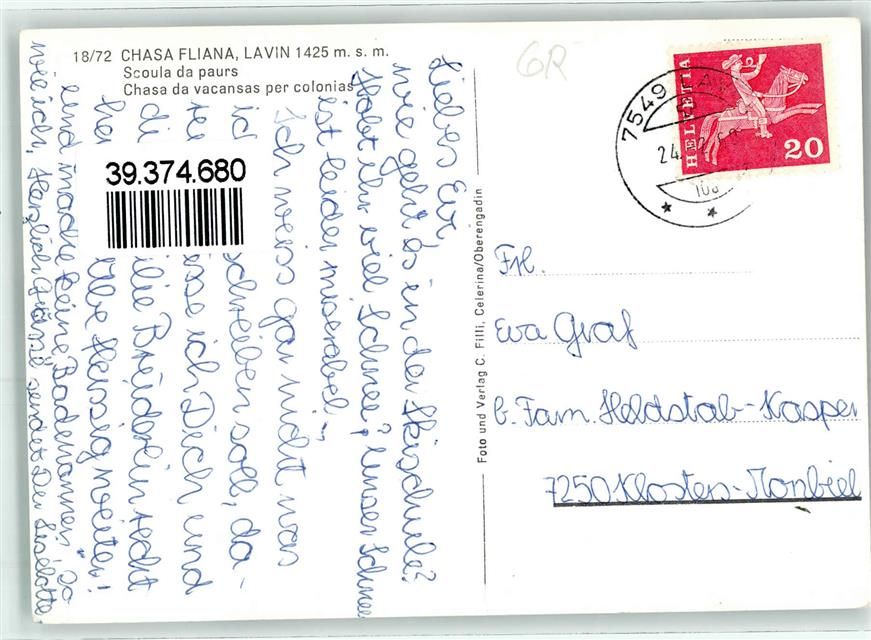 18/72 CHASA FLIANA, LAVIN 1425 m. s. m.
Scoula da paurs
Chasa da vacansas per colonias
GR
39.374.680
Liebes Eva,
wie geht es in der Skischule?
Habt ihr viel Schnee? Unser Schnee
ist leider miserabel.
Ich weiss gar nicht was
ich schreiben soll, da-
esse ich Dich und
di ilie Brüderlin recht
he Übe fleissig weiter!
und mache keine Badewannen, so
wie ich, Herzlich Grüsse sendet Dir Liselotte
Foto und Verlag C. Filli, Celerina/Oberengadin
7549 LAV
24.
HELVETIA
20
Frl.
Eva Graf
b. Fam. Heldstab-Kasper
7250 Klosters-Monbiel